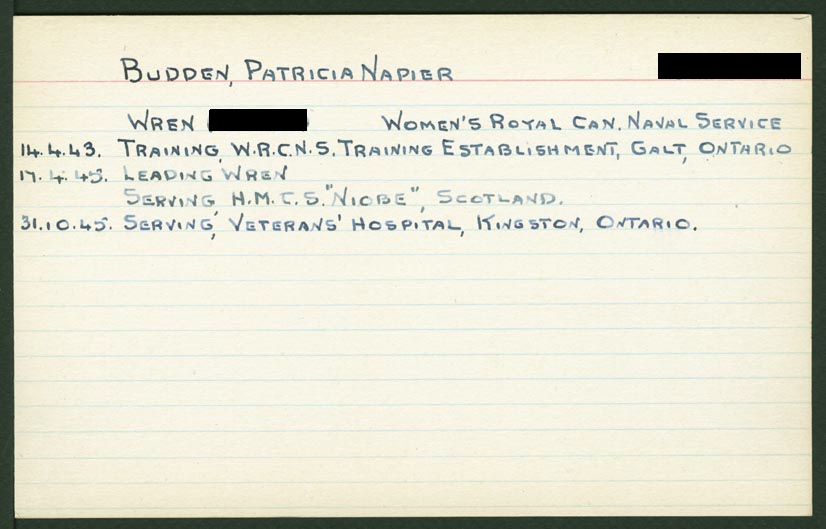 BUDDEN, PATRICIA NAPIER
WREN ( ) WOMEN'S ROYAL CAN. NAVAL SERVICE
14.4.43. TRAINING, W.R.C.N.S. TRAINING ESTABLISHMENT, GALT, ONTARIO
17.4.45. LEADING WREN
SERVING H.M.C.S. "NIOBE", SCOTLAND.
31.10.45. SERVING, VETERANS' HOSPITAL, KINGSTON, ONTARIO.